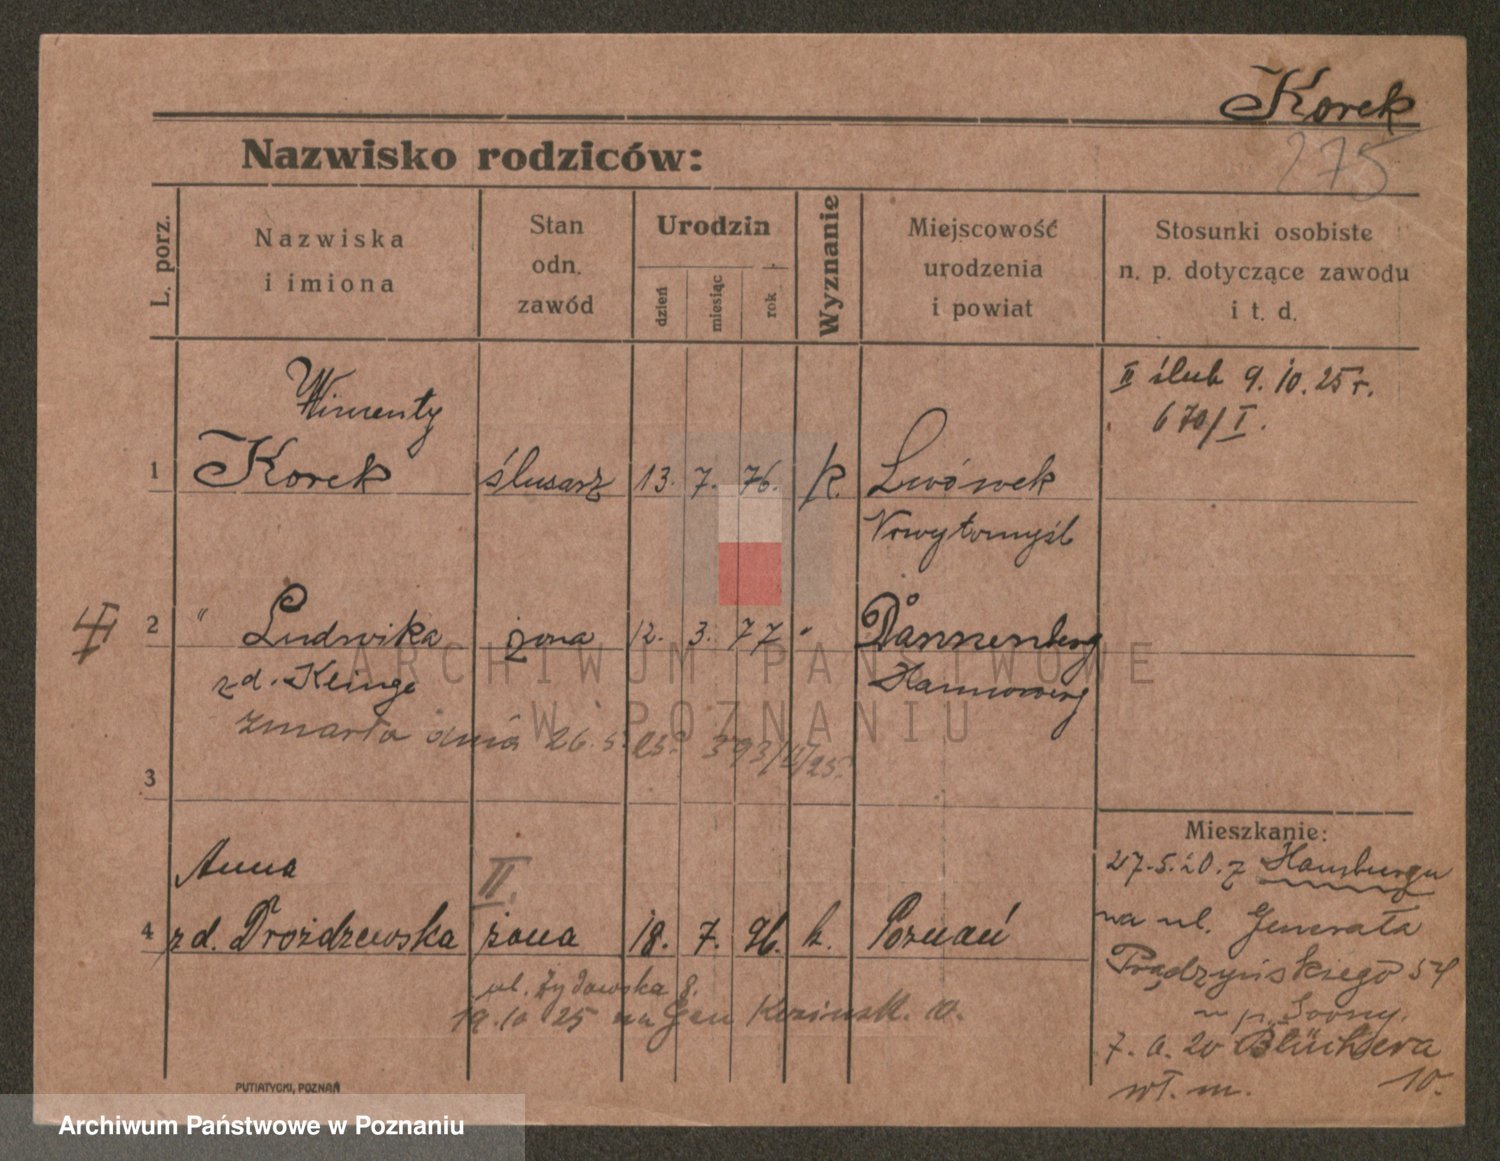 Korek
275
Nazwisko rodziców:
L. porz.
Nazwiska
i imiona
Stan
odn.
zawód
Urodzin
dzień
miesiąc
rok
Wyznanie
Miejscowość
urodzenia
i powiat
Stosunki osobiste
n. p. dotyczące zawodu
i t. d.
II ślub 9. 10. 25 r.
670/I.
Wincenty
1 Korek ślusarz 13. 7. 76. k. Lwówek
Nowytomyśl
2 " Ludwika żona 12. 3. 77 " Dannenberg
zd. Klinge
zmarła dnia 26.5.25. 393/II/25.
3
Anna II.
4 zd. Drożdzewska żona 18. 7. 96. k. Poznań
ul. Żydowska 8.
19.10 25 na Gen 10.
Mieszkanie:
27.5.20. z Hamburgu
na ul. Generała
Prądzyńskiego 54
7. 20 Blüchera
wł. m. 10.
PUTIATYCKI, POZNAŃ
ARCHIWUM PAŃSTWOWE
W POZNANIU
Archiwum Państwowe w Poznaniu